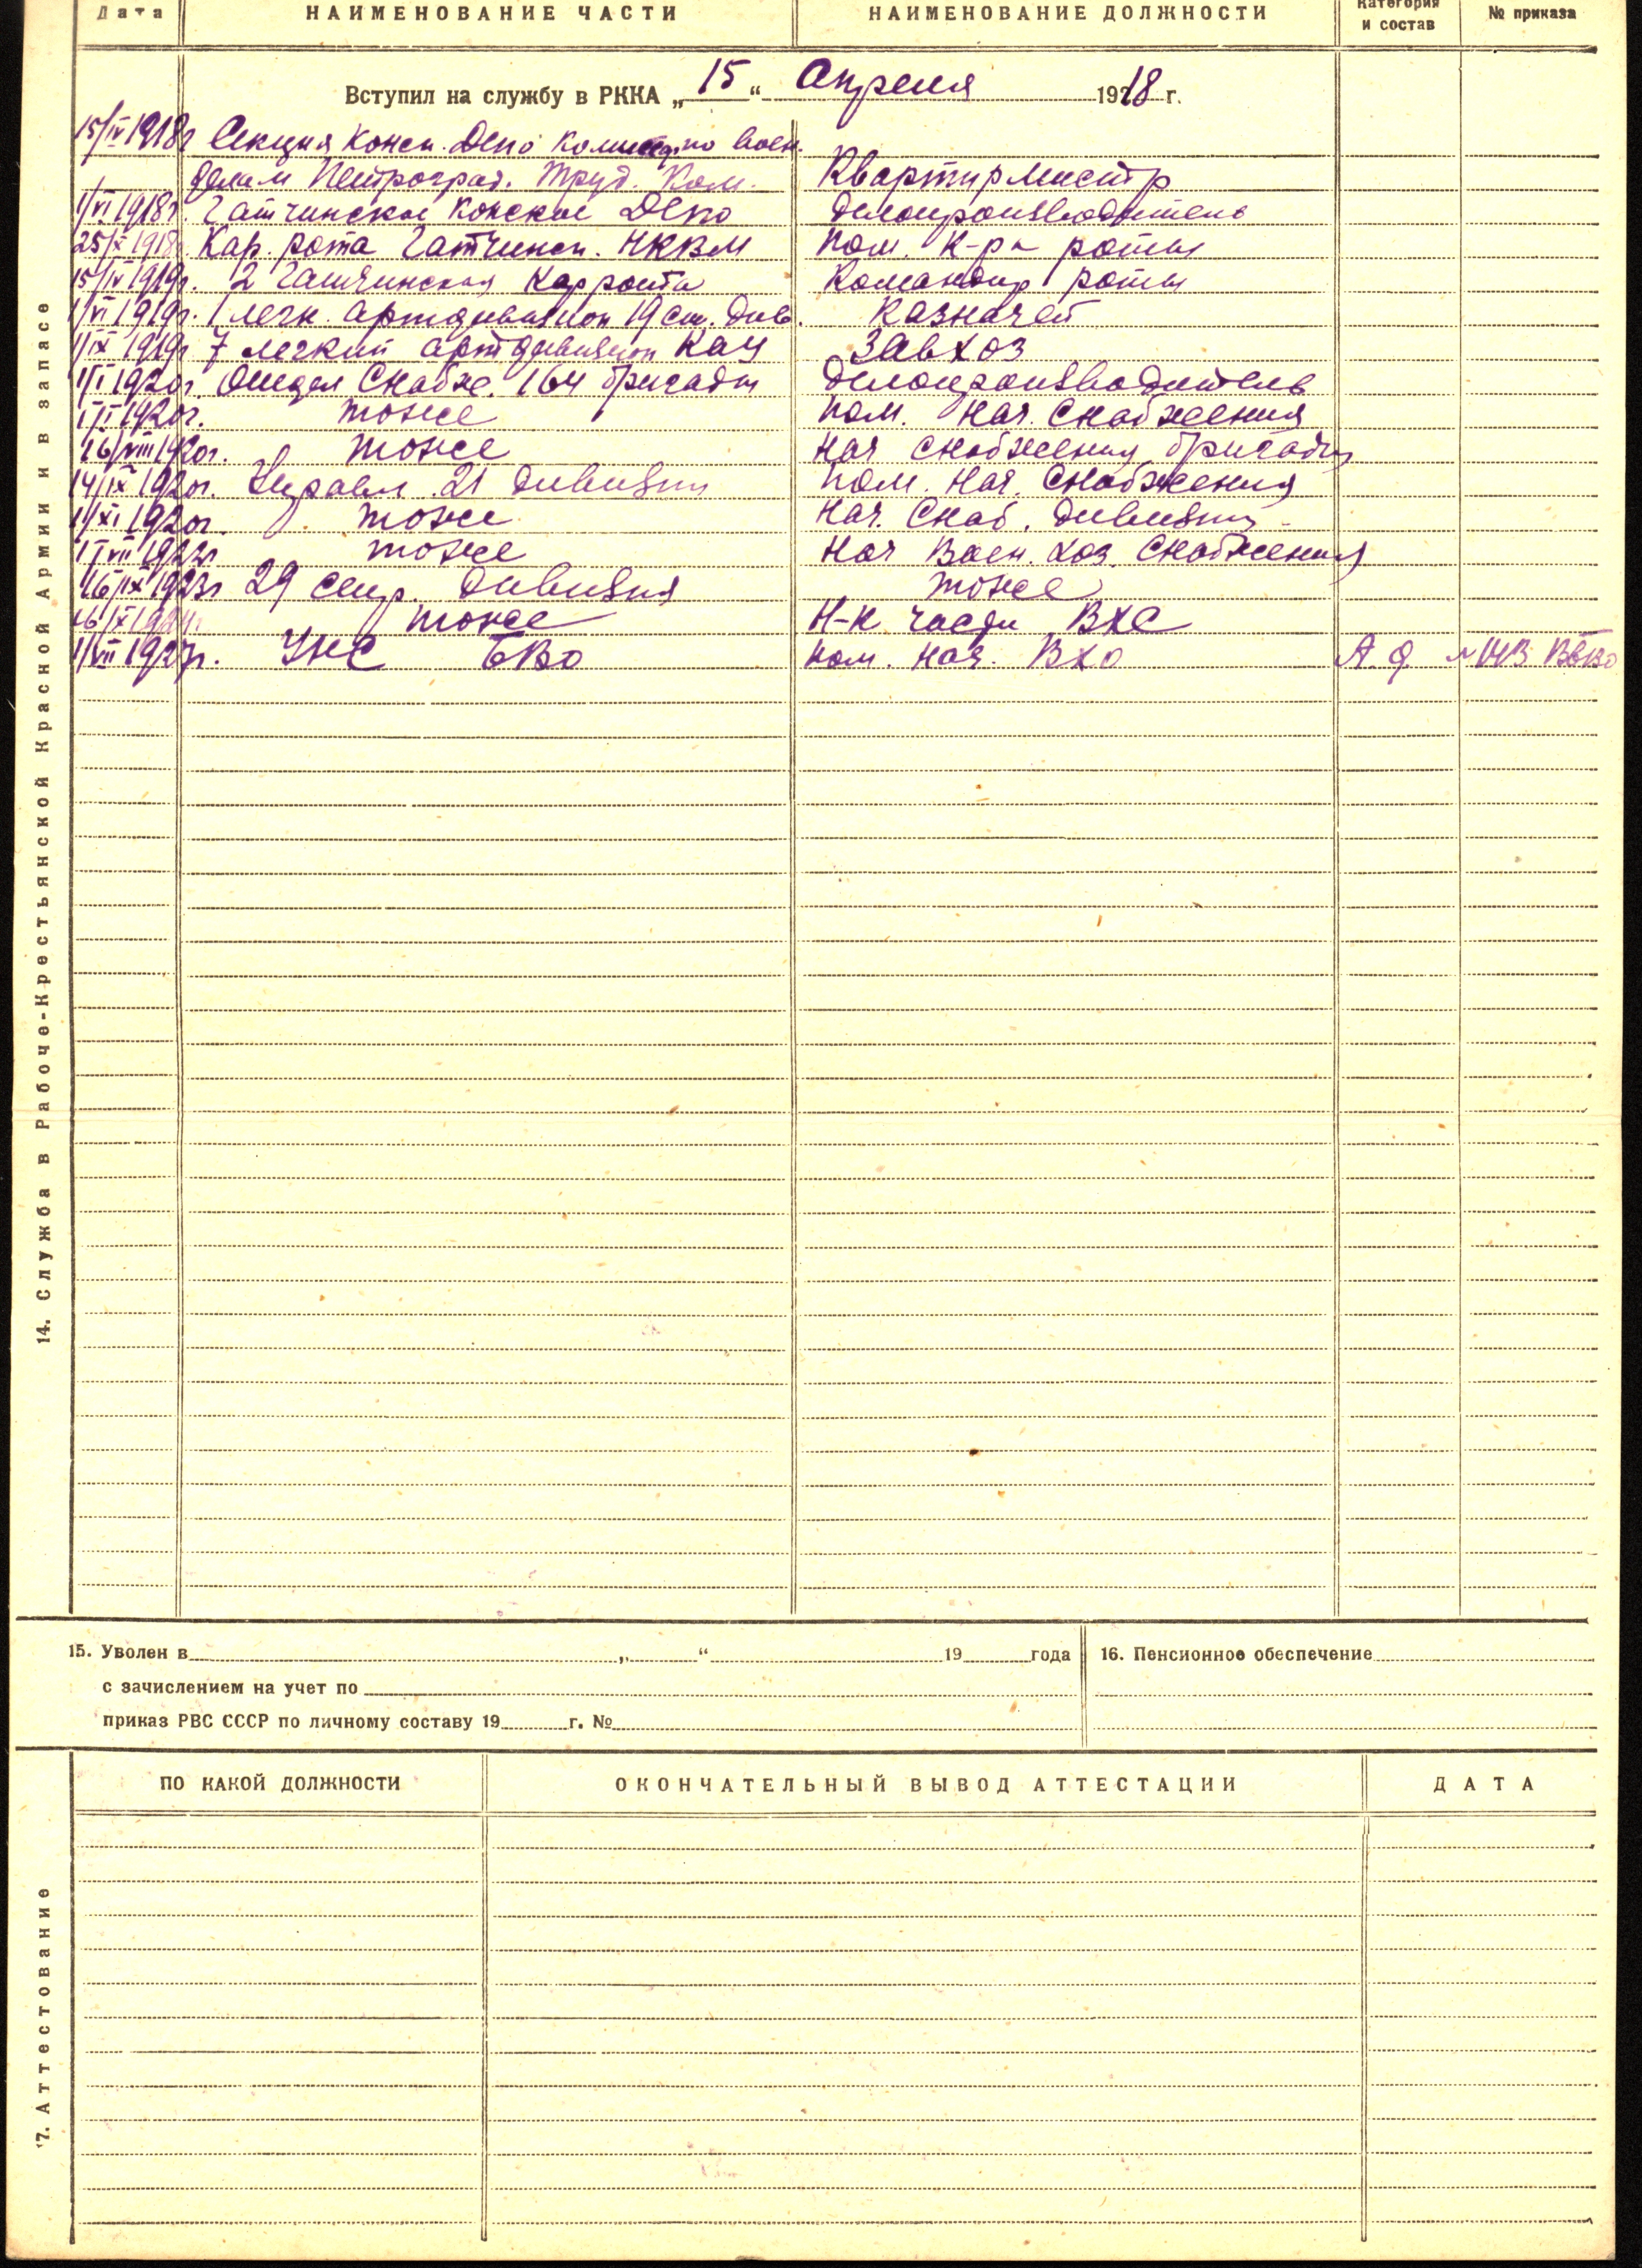 Дата НАИМЕНОВАНИЕ ЧАСТИ НАИМЕНОВАНИЕ ДОЛЖНОСТИ Категория и состав № приказа
Вступил на службу в РККА „15“ Апреля 1918 г.
15/IV 1918г Секция Конск. Депо по воен.
делам Петроград. Труд. Ком. Квартирмистр
1/VI 1918г. Гатчинское Конское Депо Делопроизводитель
25/X 1918г. Кар. рота Гатчинск. УКВМ Пом. К-ра роты
15/IV 1919г. 2 Гатчинская Каррота Командир роты
1/VI 1919г. 1 легк. артдивизион 19 ст. див. Казначей
1/IX 1919г 7 легкий артдивизион Завхоз
1/I 1920г. Отдел Снабж. 164 бригады Делопроизводитель
1/II 1920г. тоже Пом. Нач. Снабжения
16/VIII 1920г. тоже Нач Снабжения бригады
14/IX 1920г. Управл. 21 дивизии Пом. Нач. Снабжения
1/XI 1920г. тоже Нач. Снаб. дивизии
1/VII 1922г тоже Нач Воен. Хоз. Снабжения
16/IX 1923г 29 стр. дивизия тоже
16/X 1924г. тоже Н-к части ВХС
1/VII 1927г. УНС БВО Пом. Нач. ВХО
14. Служба в Рабоче-Крестьянской Красной Армии и в запасе
15. Уволен в „ “ 19 года
с зачислением на учет по
приказ РВС СССР по личному составу 19 г. №
16. Пенсионное обеспечение
ПО КАКОЙ ДОЛЖНОСТИ ОКОНЧАТЕЛЬНЫЙ ВЫВОД АТТЕСТАЦИИ ДАТА
17. Аттестование